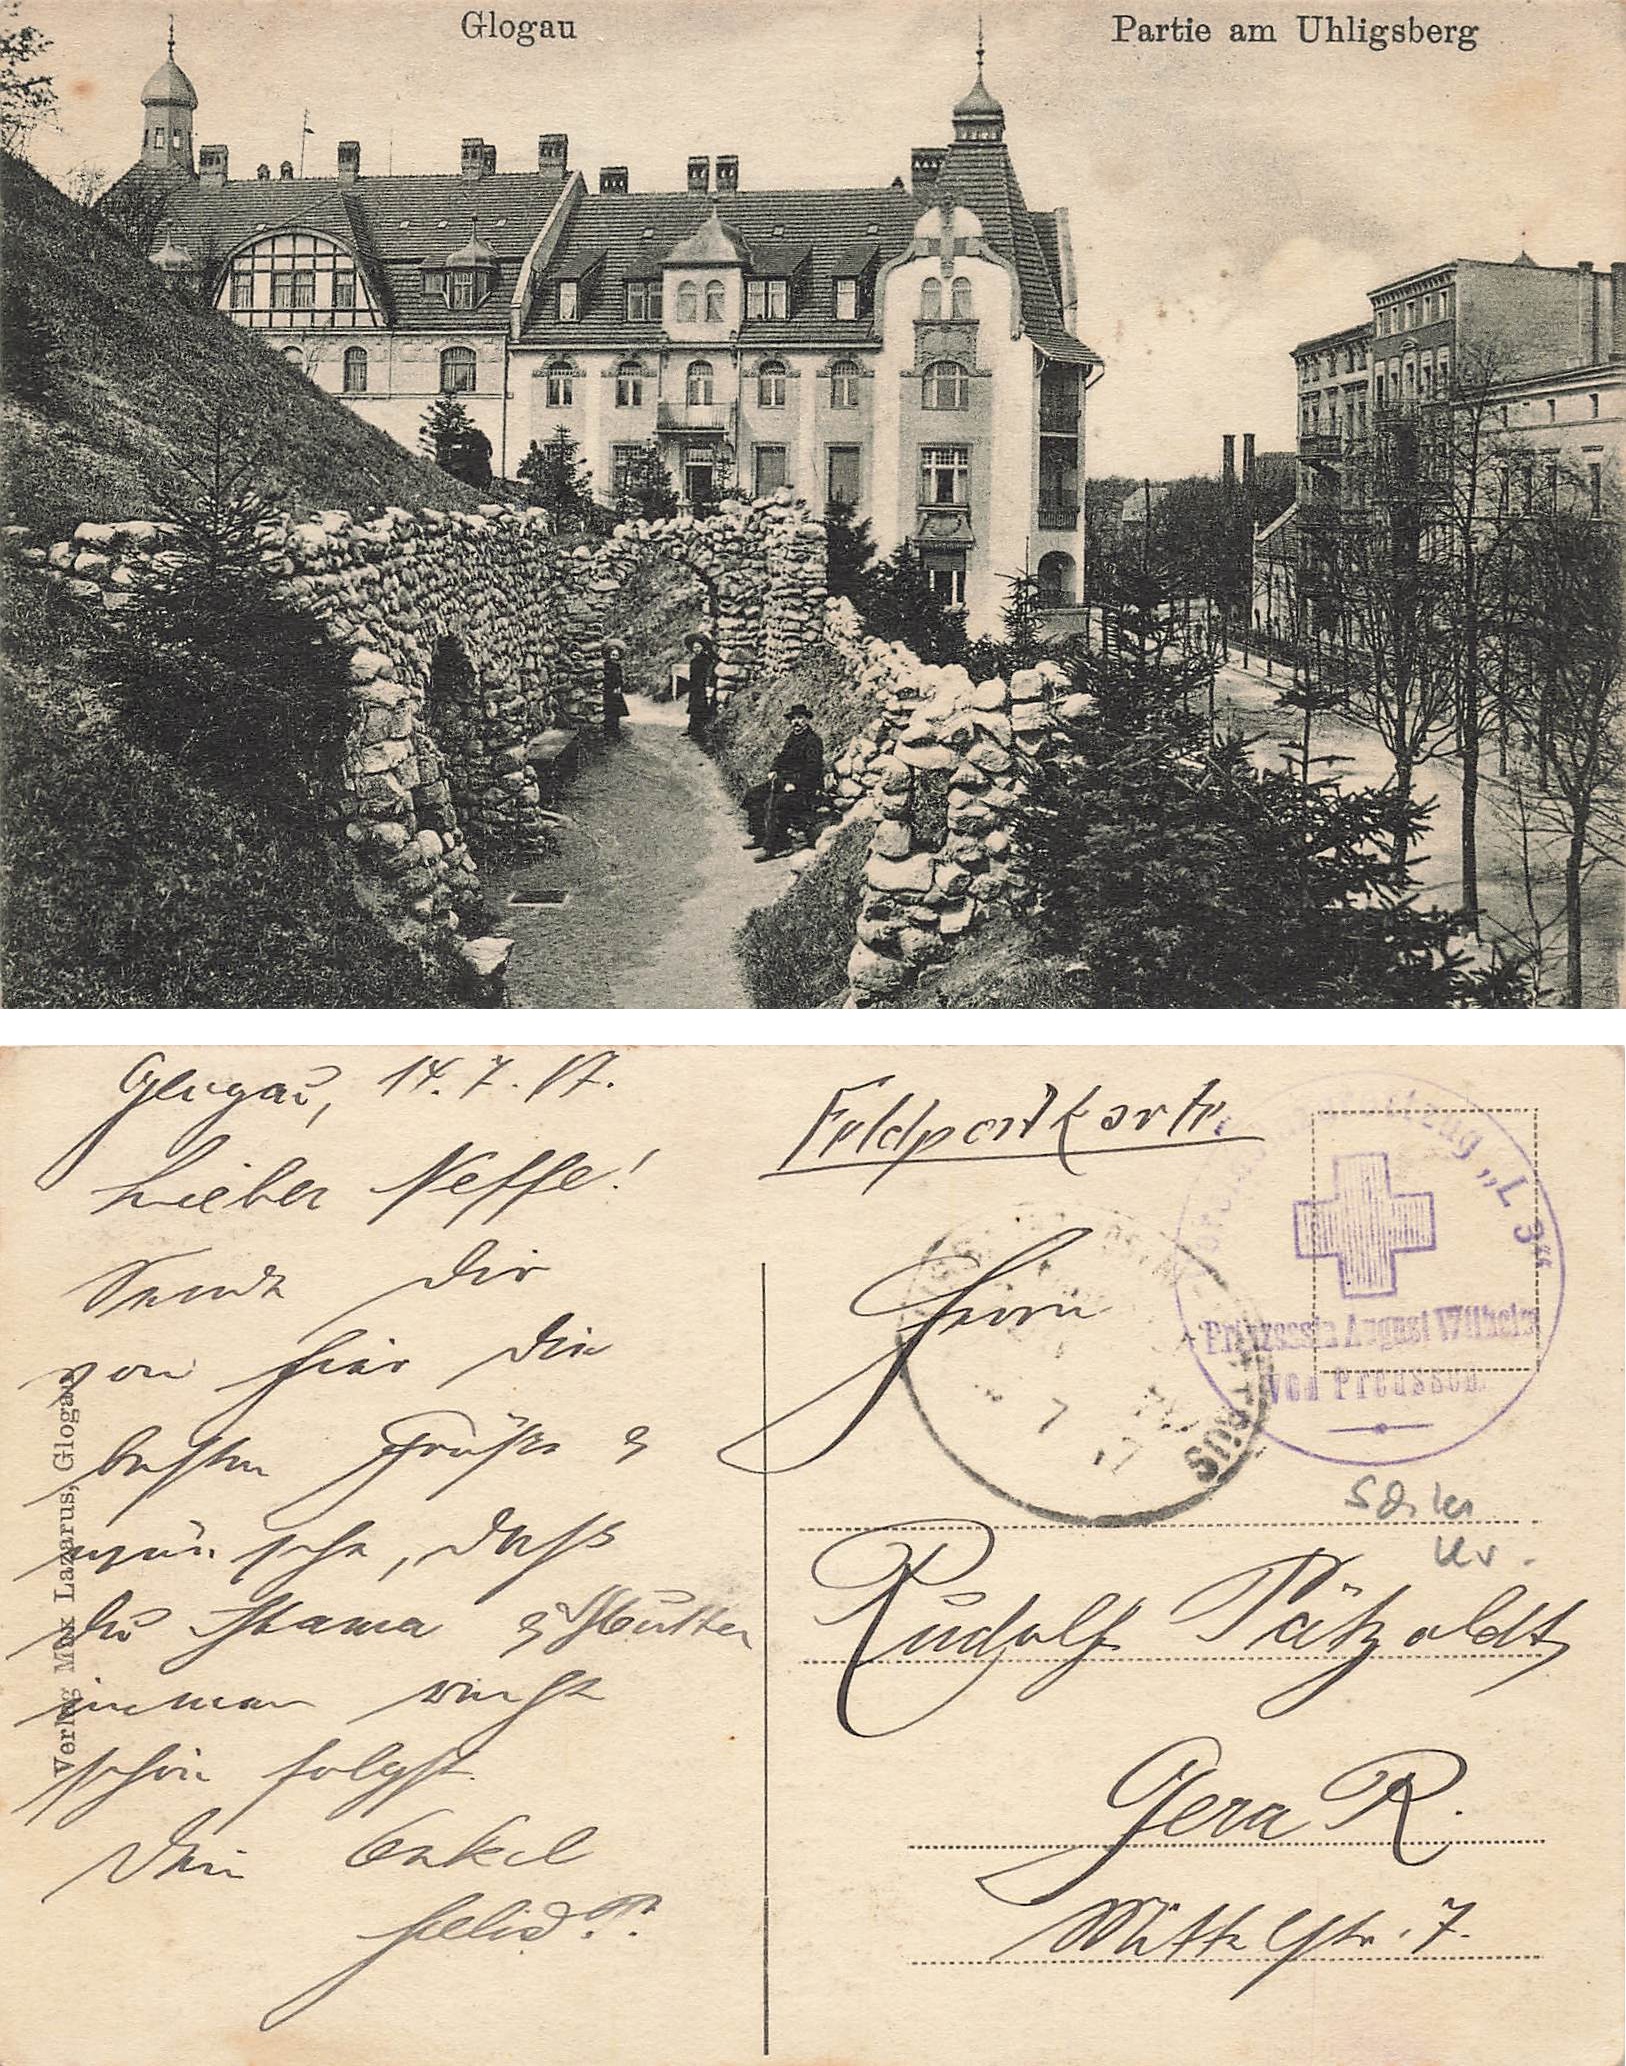 Glogau
Partie am Uhligsberg
Glogau, 14.7.17.
Lieber Neffe!
Sende Dir
von hier die
besten Grüße &
wünsche, daß
du Mama & Mutter
immer recht
schön folgst.
Dein Onkel
Verlag Max Lazarus, Glogau
Feldpostkarte
"L 3"
Prinzessin August Wilhelm
von Preussen.
Herrn
Rudolf Pätzoldt
Gera R.